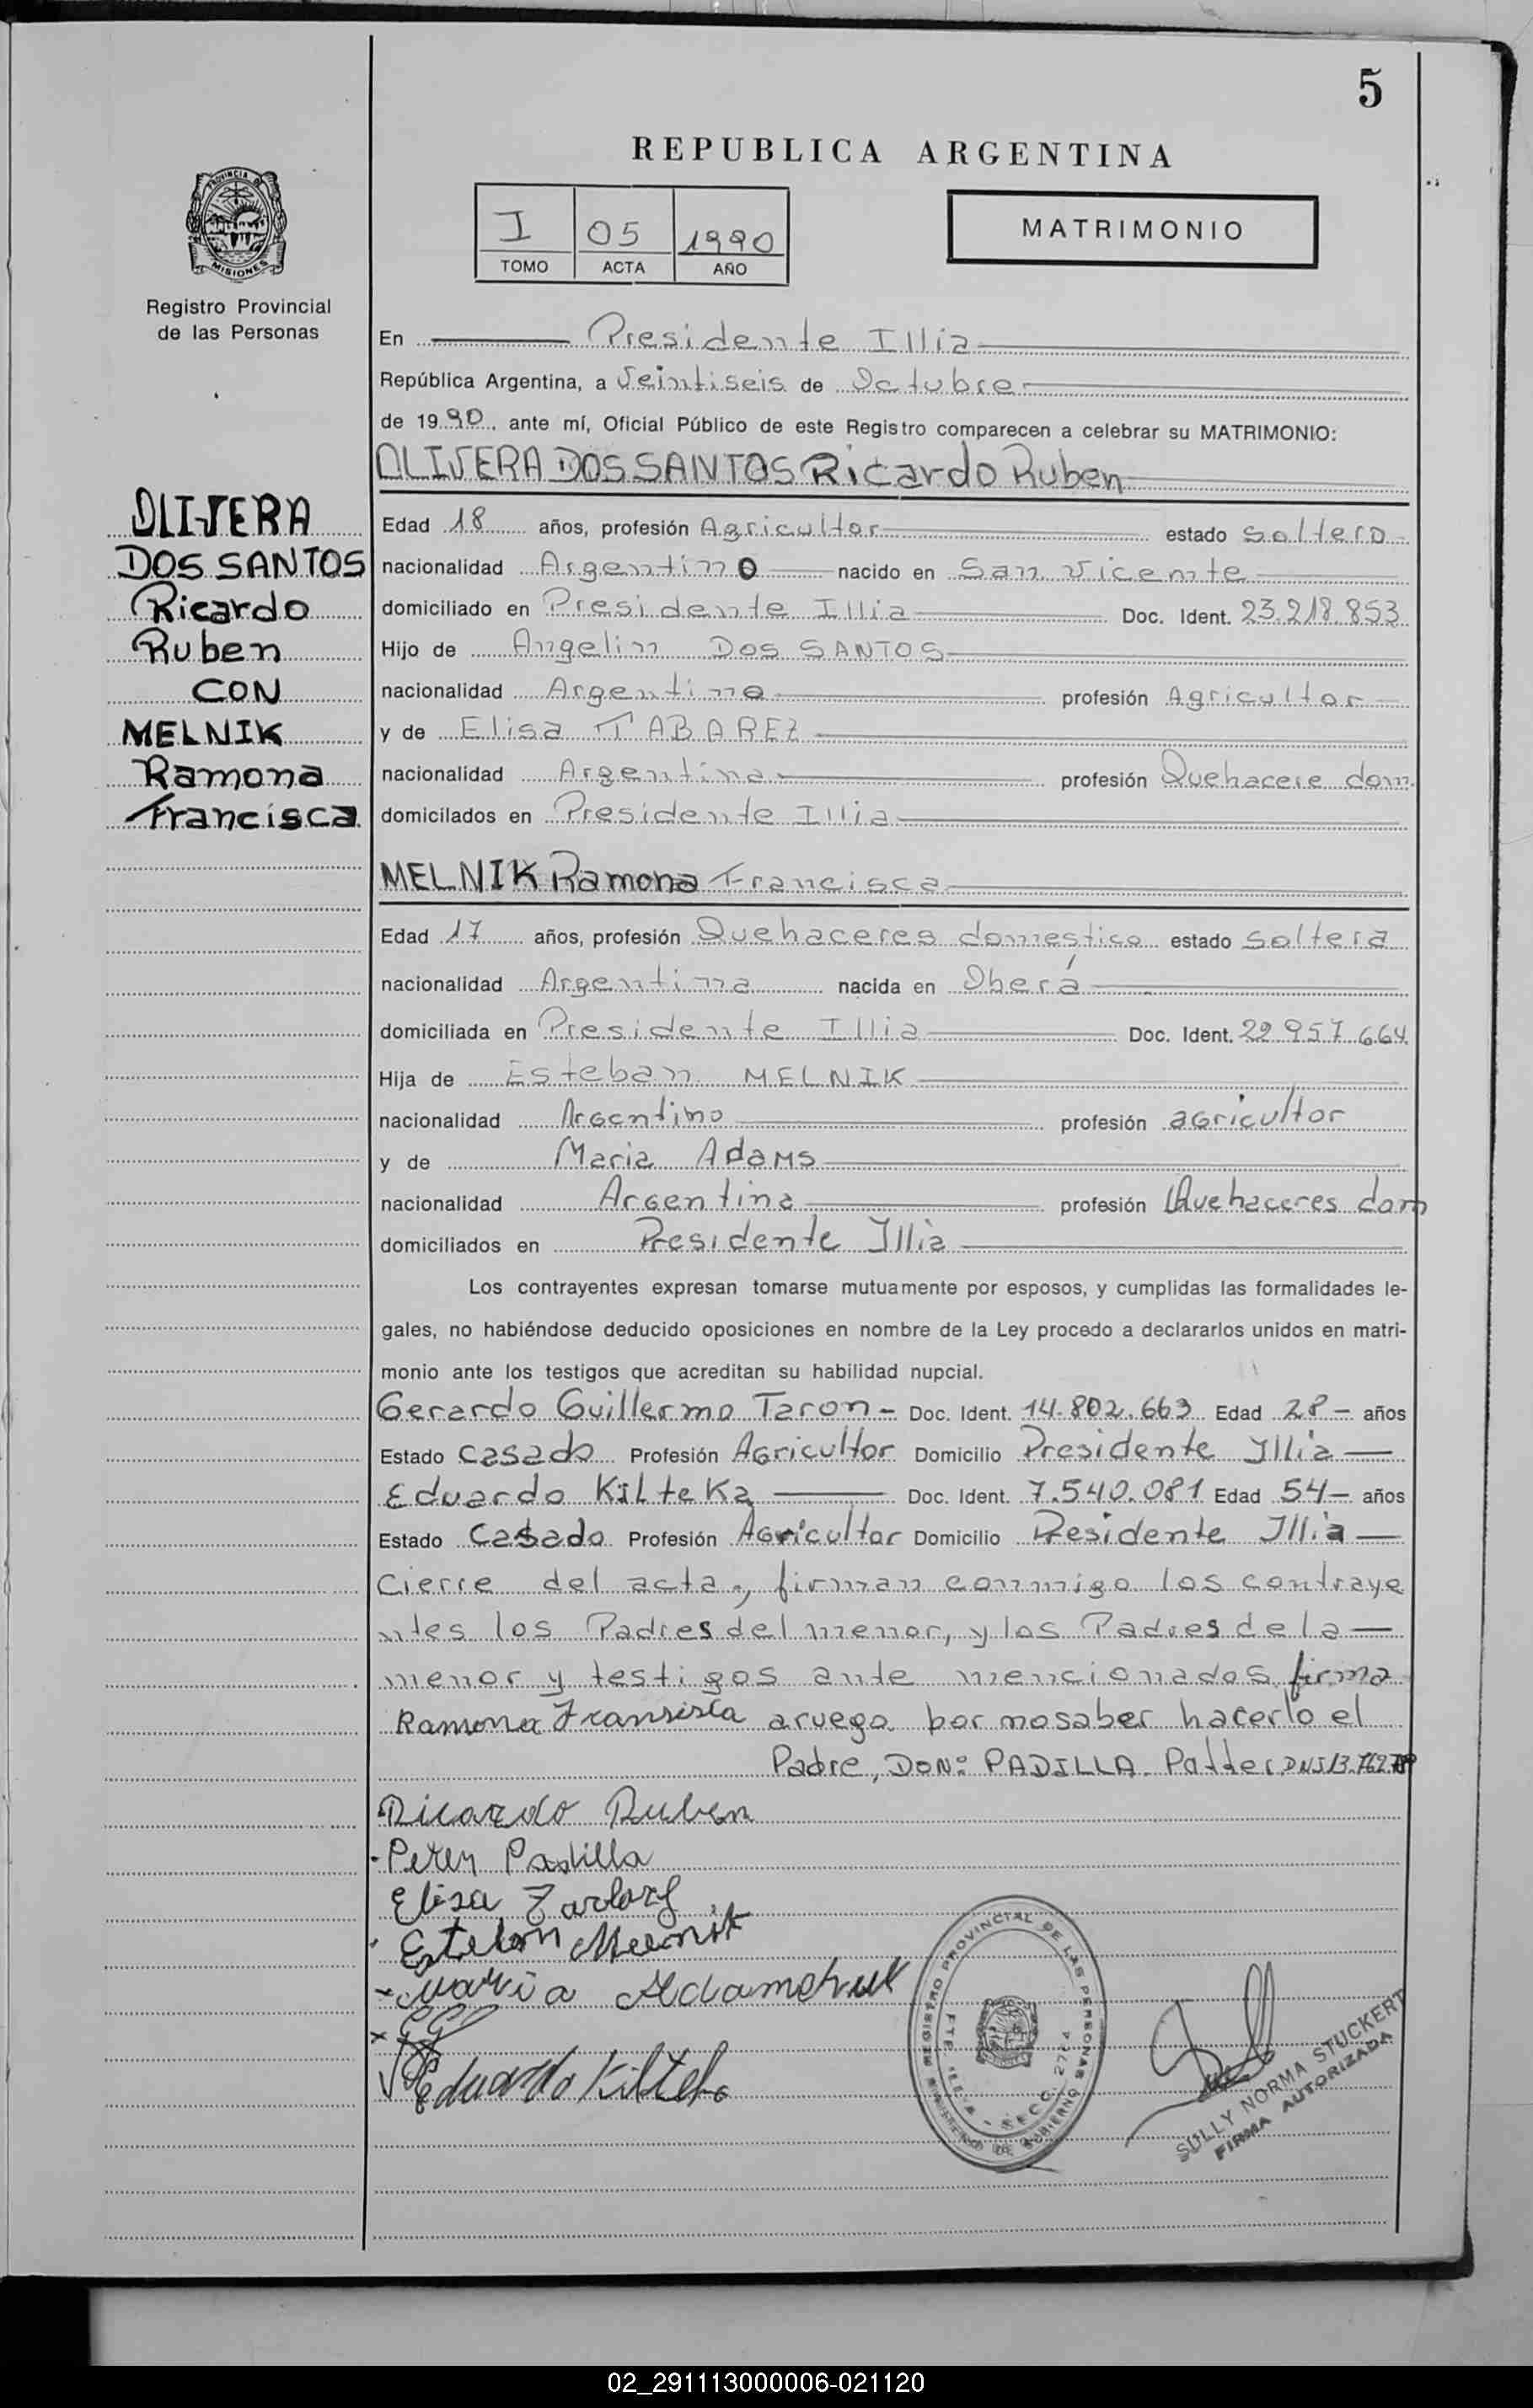 5
REPUBLICA ARGENTINA
I 05 1990
TOMO ACTA AÑO
MATRIMONIO
PROVINCIA DE
MISIONES
Registro Provincial
de las Personas
OLIVERA
DOS SANTOS
Ricardo
Ruben
CON
MELNIK
Ramona
Francisca
En Presidente Illia
República Argentina, a Veintiseis de Octubre
de 1990, ante mí, Oficial Público de este Registro comparecen a celebrar su MATRIMONIO:
OLIVERA DOS SANTOS Ricardo Ruben
Edad 18 años, profesión Agricultor estado soltero
nacionalidad Argentino nacido en San Vicente
domiciliado en Presidente Illia Doc. Ident. 23.218.853
Hijo de Angelin DOS SANTOS
nacionalidad Argentino profesión Agricultor
y de Elisa TABAREZ
nacionalidad Argentina profesión Quehacere dom.
domicilados en Presidente Illia
MELNIK Ramona Francisca
Edad 17 años, profesión Quehaceres domestico estado soltera
nacionalidad Argentina nacida en Oberá
domiciliada en Presidente Illia Doc. Ident. 22.957.664
Hija de Esteban MELNIK
nacionalidad Argentino profesión agricultor
y de Maria Adams
nacionalidad Argentina profesión Quehaceres dom
domiciliados en Presidente Illia
Los contrayentes expresan tomarse mutuamente por esposos, y cumplidas las formalidades le-
gales, no habiéndose deducido oposiciones en nombre de la Ley procedo a declararlos unidos en matri-
monio ante los testigos que acreditan su habilidad nupcial.
Gerardo Guillermo Taron - Doc. Ident. 14.802.663 Edad 28 - años
Estado casado Profesión Agricultor Domicilio Presidente Illia
Eduardo Kilteka Doc. Ident. 7.540.081 Edad 54 - años
Estado Casado Profesión Agricultor Domicilio Presidente Illia
Cierre del acta, firman conmigo los contraye
ntes los Padres del menor, y los Padres de la
menor y testigos ante mencionados, firma
Ramona Fransisca aruego por nosaber hacerlo el
Padre, DON: PADILLA Patter
Ricardo Ruben
Peter Padilla
Elisa
Esteban Melnik
Maria Adamchuk
Eduardo Kilteka
REGISTRO PROVINCIAL DE LAS PERSONAS
SECC. 2764
MINISTERIO DE GOBIERNO
SULLY NORMA STUCKERT
FIRMA AUTORIZADA
02_291113000006-021120